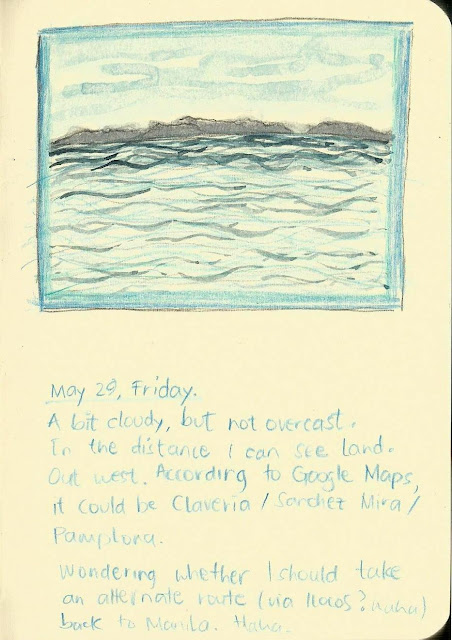 May 29, Friday.
A bit cloudy, but not overcast.
In the distance I can see land.
Out west. According to Google Maps,
it could be Claveria / Sanchez Mira /
Pamplona.
Wondering whether I should take
an alternate route (via Ilocos? Haha)
back to Manila. Haha.